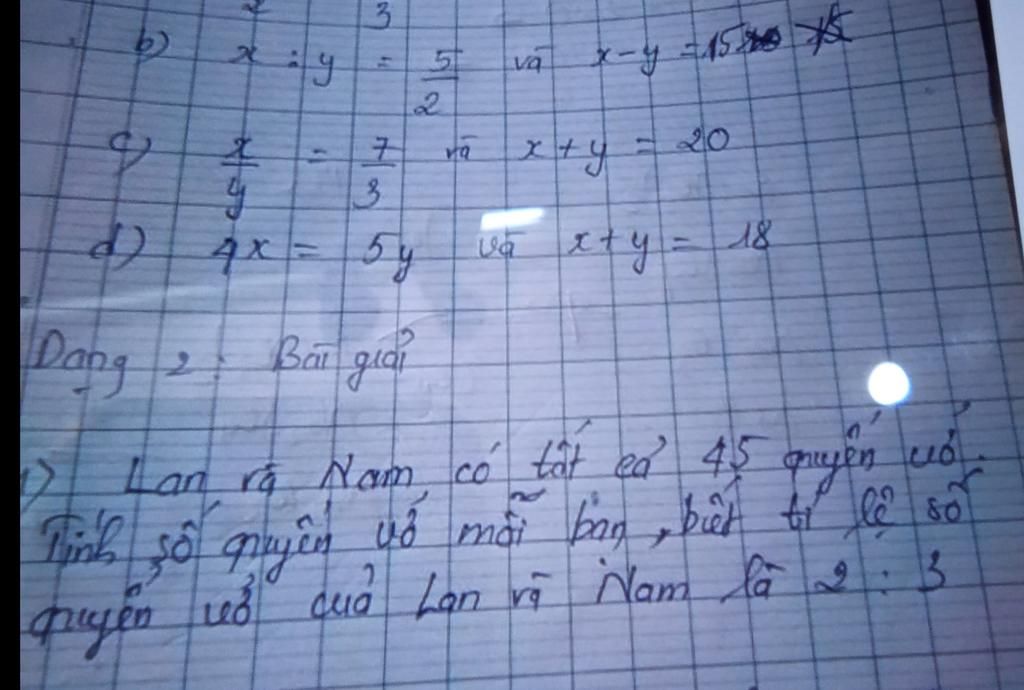 3
b) x : y = 5/2 và x - y = 15
c) x/y = 7/3 và x + y = 20
d) 4x = 5y và x + y = 18
Dạng 2 : Bài giải
1) Lan và Nam có tất cả 45 quyển vở.
Tính số quyển vở mỗi bạn, biết tỉ lệ số
quyển vở của Lan và Nam là 2 : 3